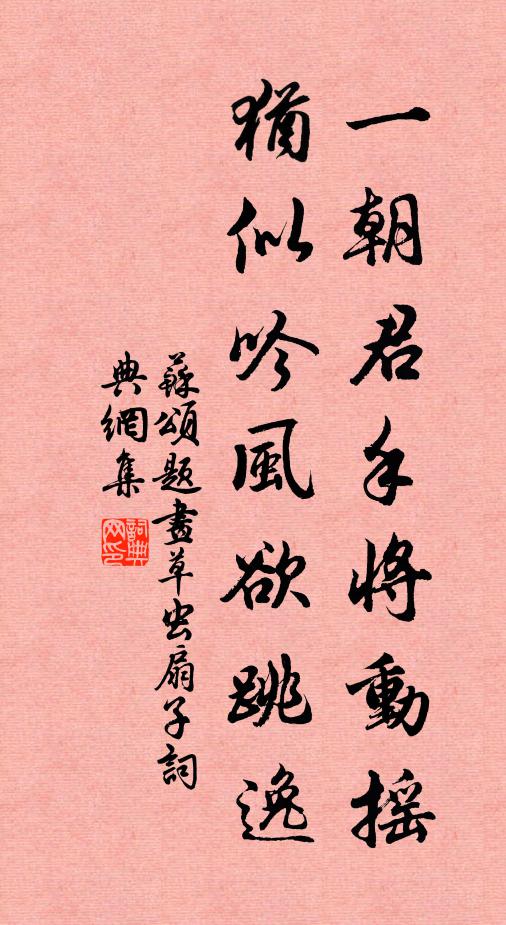 一朝君手將動搖
猶似吟風欲跳逸
蘇頌題畫草虫扇子詞
典網集
詞典
网印